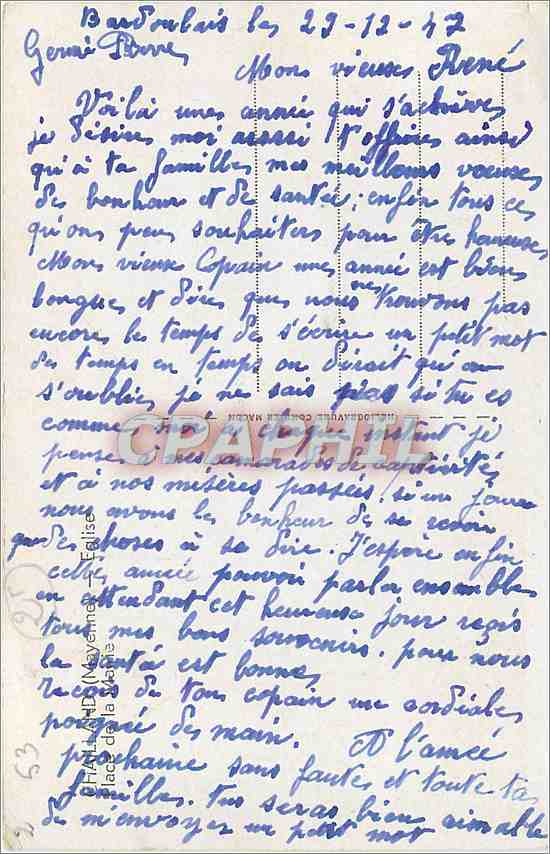 Bardoulais les 29-12-47
Germé Pierre
Mons vieuxs René
Voilà unes année qui s'achèves
je désires moi aussi t'offires ainsi
qu'à ta familles mes meilleurs voeuxs
des bonheur et de santée ; enfin tous ces
qu'ons peus souhaiters pour êtres heureuses
Mons vieux Copain unes année est biens
longues et dires ques nous nes trouvons pas
encores les temps des s'écrire un petit mot
des temps en temps on dirait qu'on
s'oublies, je ne sais pas si tu es
comme moi à chaque instant je
penses à mes camarades de captivités
et à nos misères passées, si un jour
nous avons les bonheur de se revoir
ques des choses à se dire. J'espère enfin
cettes année pouvoir parler ensembles
en attendant cet heureux jour reçois
tous mes bons souvenirs. pour nous
la santé est bonnes
reçois de tons copain une cordiales
poignée des main. A l'année
prochaine sans fautes et toute ta
familles. Tus seras bien aimable
de m'envoyer un petit mot
CPAPHIL
HELIOGRAVURE COMBIER MACON
CHAILLAND (Mayenne) - L'Eglise
Place de la Mairie
25
53